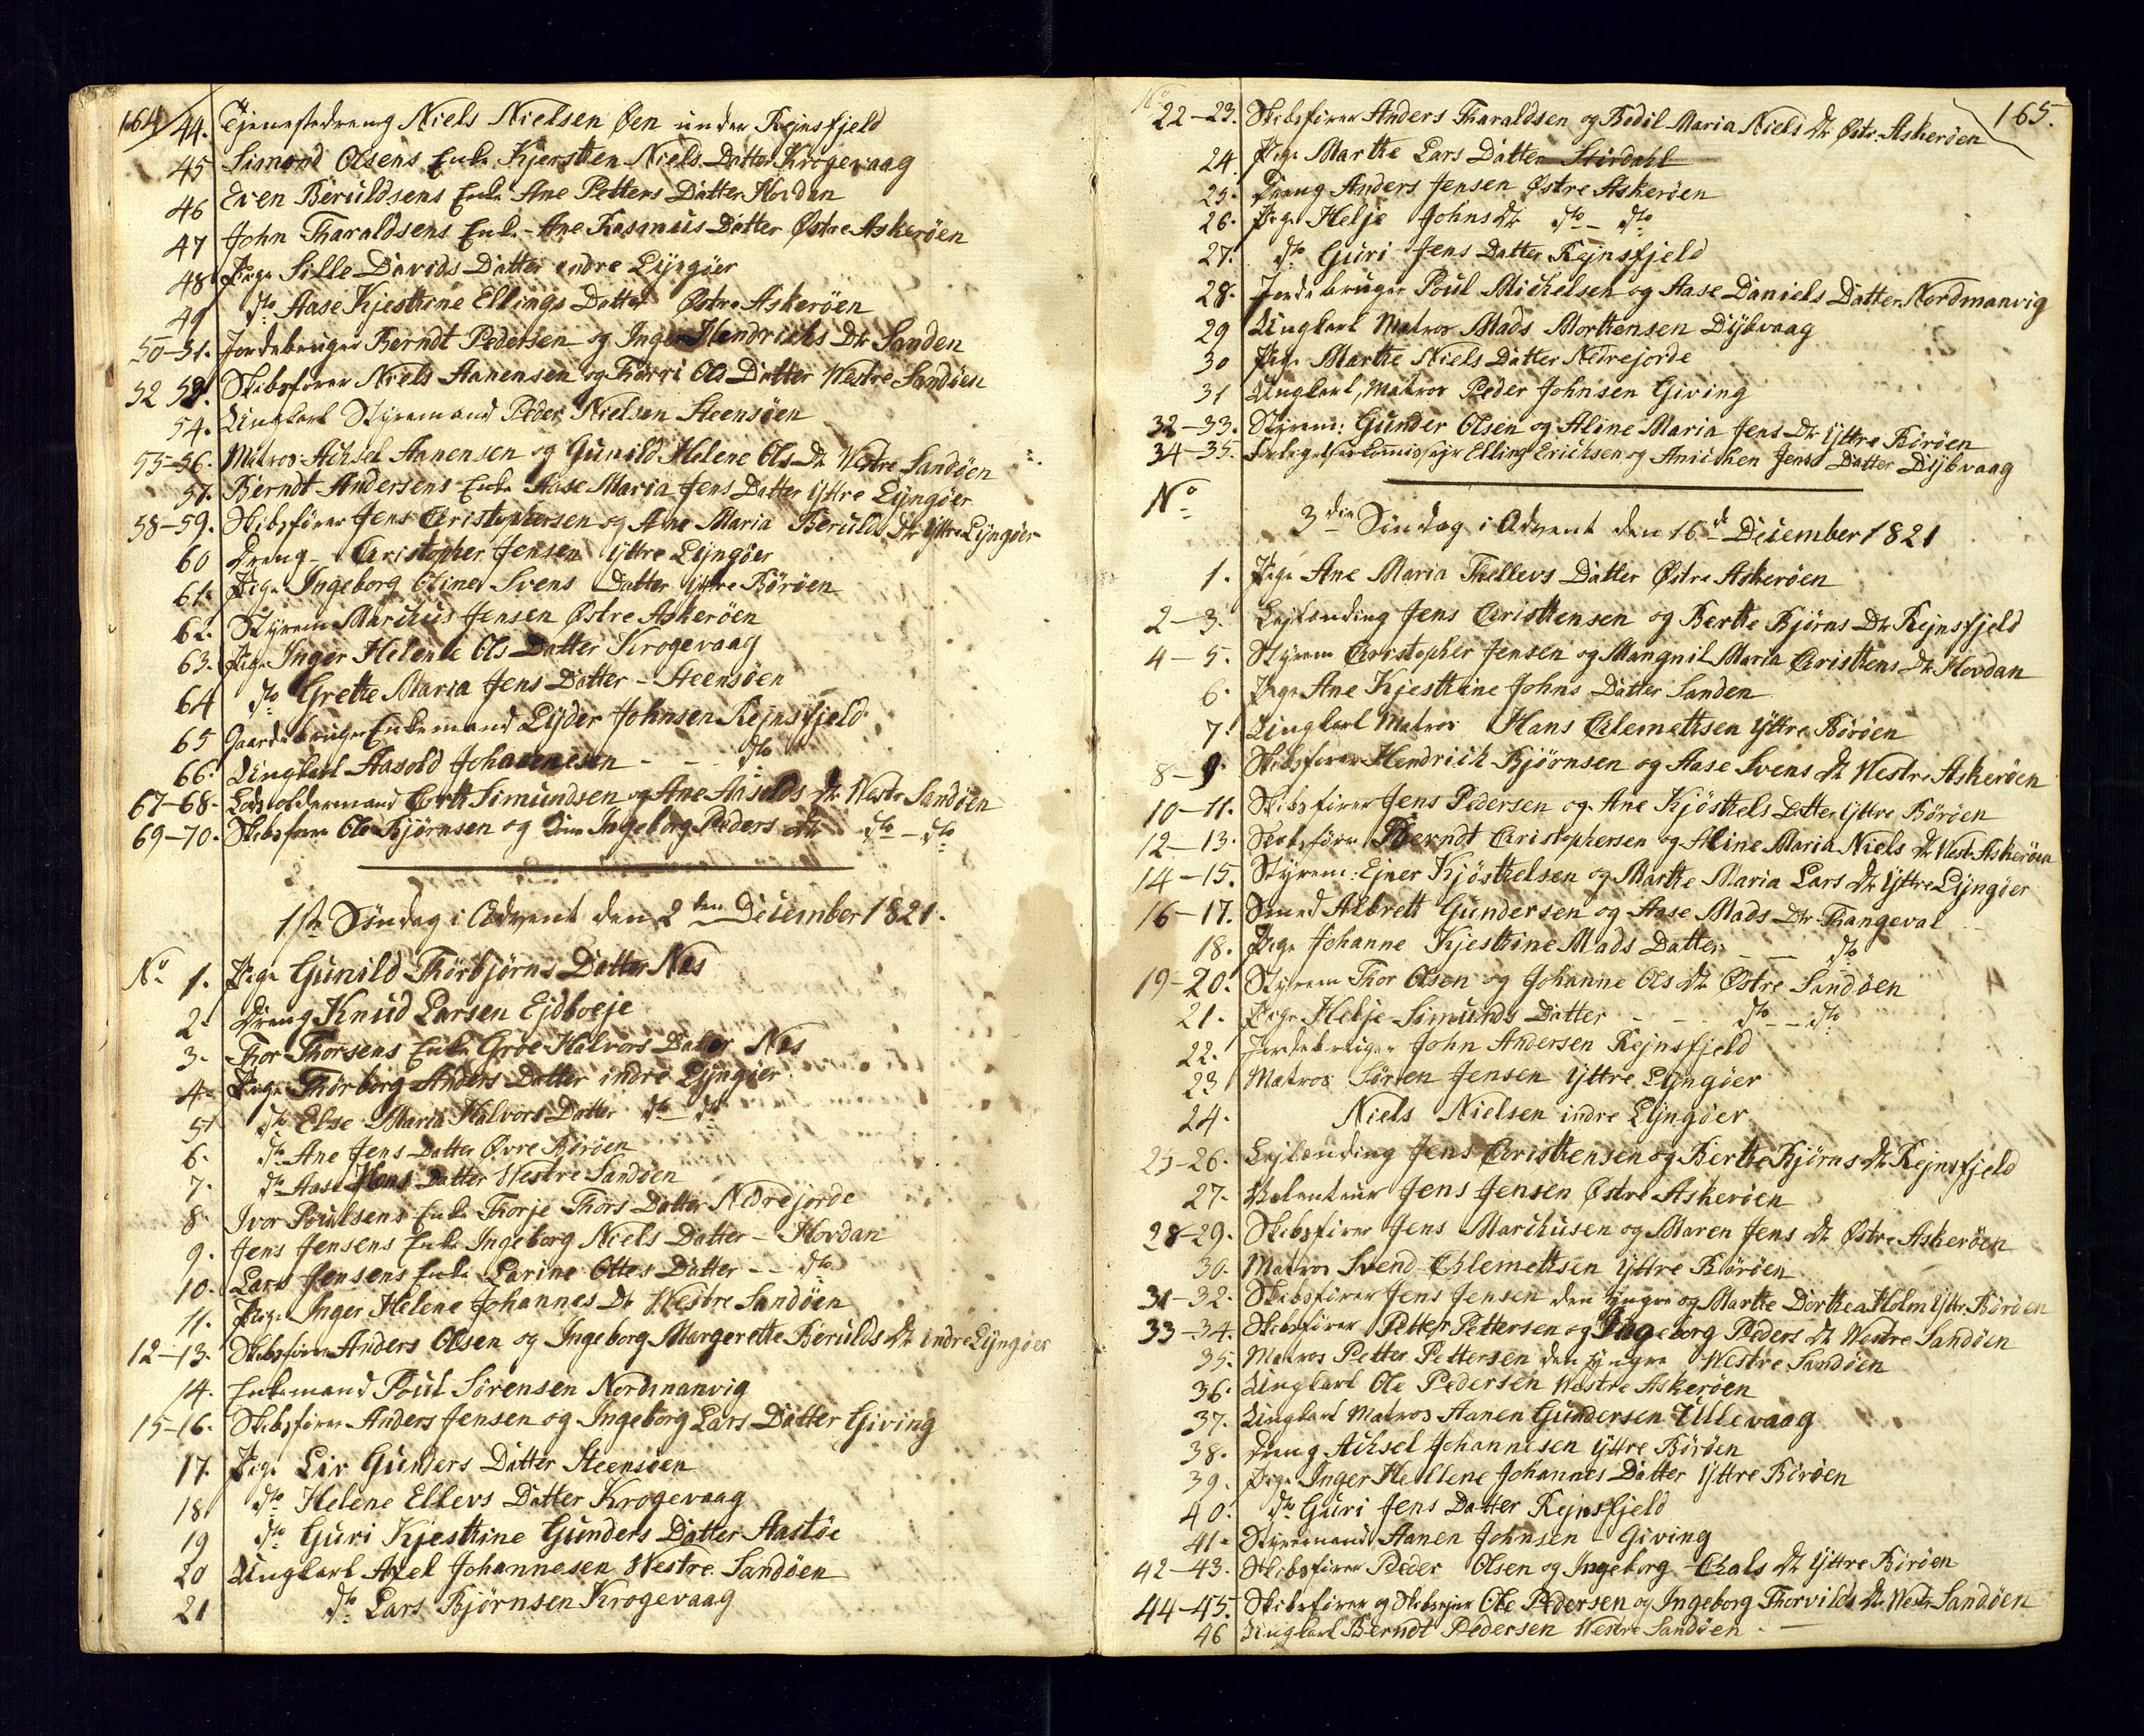 164
44. Tjenestedreng Niels Nielsen Øen under Rejnsfjeld
45 Simond Olsens Enke Kjersten Niels Datter Krogevaag
46 Even Beruldsens Enke Ane Petters Datter Hovdan
47 John Tharaldsens Enke Ane Rasmus Datter Østre Askerøen
48. Pige Sille Davids Datter indre Lyngøer
49 dto Aase Kjestine Ellings Datter Østre Askerøen
50-51. Jordebruger Berndt Pedersen og Inger Hendrichs Dtr Sanden
52 53. Skibsfører Niels Aanensen og Ols Datter Westre Sandøen
54. Ungkarl Styremand Peder Nielsen Steensøen
55-56. Matros Achsel Aanensen og Gunild Helene Ols Dtr Westre Sandøen
57. Berndt Andersens Enke Aase Maria Jens Datter Yttre Lyngøer
58-59. Skibsfører Jens Christophersen og Ane Maria Berulds Dtr Yttre Lyngøer
60 Dreng Christopher Jensen Yttre Lyngøer
61. Pige Ingeborg Oline Svens Datter Yttre Børøen
62. Styrem Marchus Jensen Østre Askerøen
63. Pige Inger Helene Ols Datter Krogevaag
64 dto Grethe Maria Jens Datter - Steensøen
65 Gaardebruger Enkemand Lyder Johnsen Rejnsfjeld
66. Ungkarl Aasold Johannesen - - dto
67-68. Lodsoldermand Simundsen og Ane Aasolds Dtr Westr Sandøen
69-70. Skibsfører Ole Bjørnsen og Ingeborg Peders Dtr dto - dto
1ste Søndag i Advent den 2den December 1821.
No 1. Pige Gunild Thorbjørns Datter Næs
2. Dreng Knud Larsen Ejdboeje
3. Thor Thorsens Enke Groe Halvors Datter Næs
4. Pige Thorborg Anders Datter indre Lyngøer
5. dto Else Maria Halvors Datter dto - dto
6. dto Ane Jens Datter Øvre Børøen
7. dto Aase Hans Datter Westre Sandøen
8. Ivor Poulsens Enke Thorje Thors Datter Nedrejorde
9. Jens Jensens Enke Ingeborg Niels Datter - Hovdan
10. Lars Jensens Enke Larine Ottes Datter - - dto
11. Pige Inger Helene Johannes Dtr Westre Sandøen
12-13. Skibsfører Anders Olsen og Ingeborg Margerethe Berulds Dtr indre Lyngøer
14. Enkemand Poul Sørensen Nordmanvig
15-16. Skibsfører Anders Jensen og Ingeborg Lars Datter Giving
17. Pige Liv Gunders Datter Steensøen
18 dto Helene Ellevs Datter Krogevaag
19 dto Guri Kjesthine Gunders Datter Aastøe
20 Ungkarl Axel Johannesen Westre Sandøen
21 dto Lars Bjørnsen Krogevaag
165.
No
22-23. Skibsfører Anders Tharaldsen og Bodil Maria Niels Dtr Østr: Askerøen
24. Pige Marthe Lars Datter
25. Dreng Anders Jensen Østre Askerøen
26. Pige Helje Johns Dtr dto - dto
27. dto Guri Jens Datter Rejnsfjeld
28. Jordebruger Poul Michelsen og Aase Daniels Datter Nordmanvig
29 Ungkarl Matros Mads Morthensen Dybvaag
30 Pige Marthe Niels Datter Nedrejorde
31 Ungkarl, Matros Peder Johnsen Giving
32-33. Styrem: Gunder Olsen og Aline Maria Jens Dtr Yttre Børøen
34-35. Elling Erichsen og Anichen Jens Datter Dybvaag
No
3die Søndag i Advent den 16de December 1821
1. Pige Ane Maria Thellevs Datter Østre Askerøen
2-3. Lejlending Jens Christhensen og Berthe Bjørns Dtr Rejnsfjeld
4-5. Styrem Christopher Jensen og Mangnil Maria Christhens Dtr Hovdan
6. Pige Ane Kjesthine Johns Datter Sanden
7. Ungkarl Matros Hans Chlemethsen Yttre Børøen
8-9. Skibsfører Hendrich Bjørnsen og Aase Svens Dtr Westre Askerøen
10-11. Skibsfører Jens Pedersen og Ane Kjøsthels Datter Yttre Børøen
12-13. Skibsfører Berndt Christophersen og Aline Maria Niels Dtr West: Askerøen
14-15. Styrem: Ejner Kjøsthelsen og Marthe Maria Lars Dtr Yttre Lyngøer
16-17. Smed Albrett Gundersen og Aase Mads Dtr Thangeval
18. Pige Johanne Kjesthine Mads Datter - - dto
19-20. Styrem Thor Olsen og Johanne Ols Dtr Østre Sandøen
21. Pige Helje Simunds Datter - - - dto - dto
22. Jordebruger John Andersen Rejnsfjeld
23 Matros Søren Jensen Yttre Lyngøer
24. Niels Nielsen indre Lyngøer
25-26. Lejlending Jens Christhensen og Berthe Bjørns Dtr Rejnsfjeld
27. Jens Jensen Østre Askerøen
28-29. Skibsfører Jens Marchusen og Maren Jens Dtr Østre Askerøen
30. Matros Svend Chlemethsen Yttre Børøen
31-32. Skibsfører Jens Jensen den yngre og Marthe Dorthea Holm Yttr. Børøen
33-34. Skibsfører Petter Pettersen og Ingeborg Peders Dtr Westre Sandøen
35. Matros Petter Pettersen den yngre Westre Sandøen
36. Ungkarl Ole Pedersen Westre Askerøen
37. Ungkarl Matros Aanen Gundersen Ullevaag
38. Dreng Achsel Johannesen Yttre Børøen
39. Pige Inger Hellene Johannes Datter Yttre Børøen
40. dto Guri Jens Datter Rejnsfjeld
41. Styremand Aanen Johnsen - Giving
42-43. Skibsfører Peder Olsen og Ingeborg Dtr Yttre Børøen
44-45. Skibsfører og Skibsejer Ole Pedersen og Ingeborg Thorvilds Dtr Westr Sandøen
46 Ungkarl Berndt Pedersen Westre Sandøen